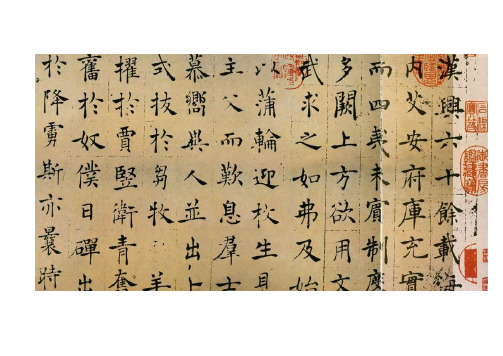 漢興六十餘載海
內艾安府庫充實
而四夷未賓制度
多闕上方欲用文
武求之如弗及始
以蒲輪迎枚生見
主父而歎息羣士
慕嚮異人並出卜
式拔於芻牧羊
擢於賈豎衛青奮
奮於奴僕日磾出
於降虜斯亦曩時